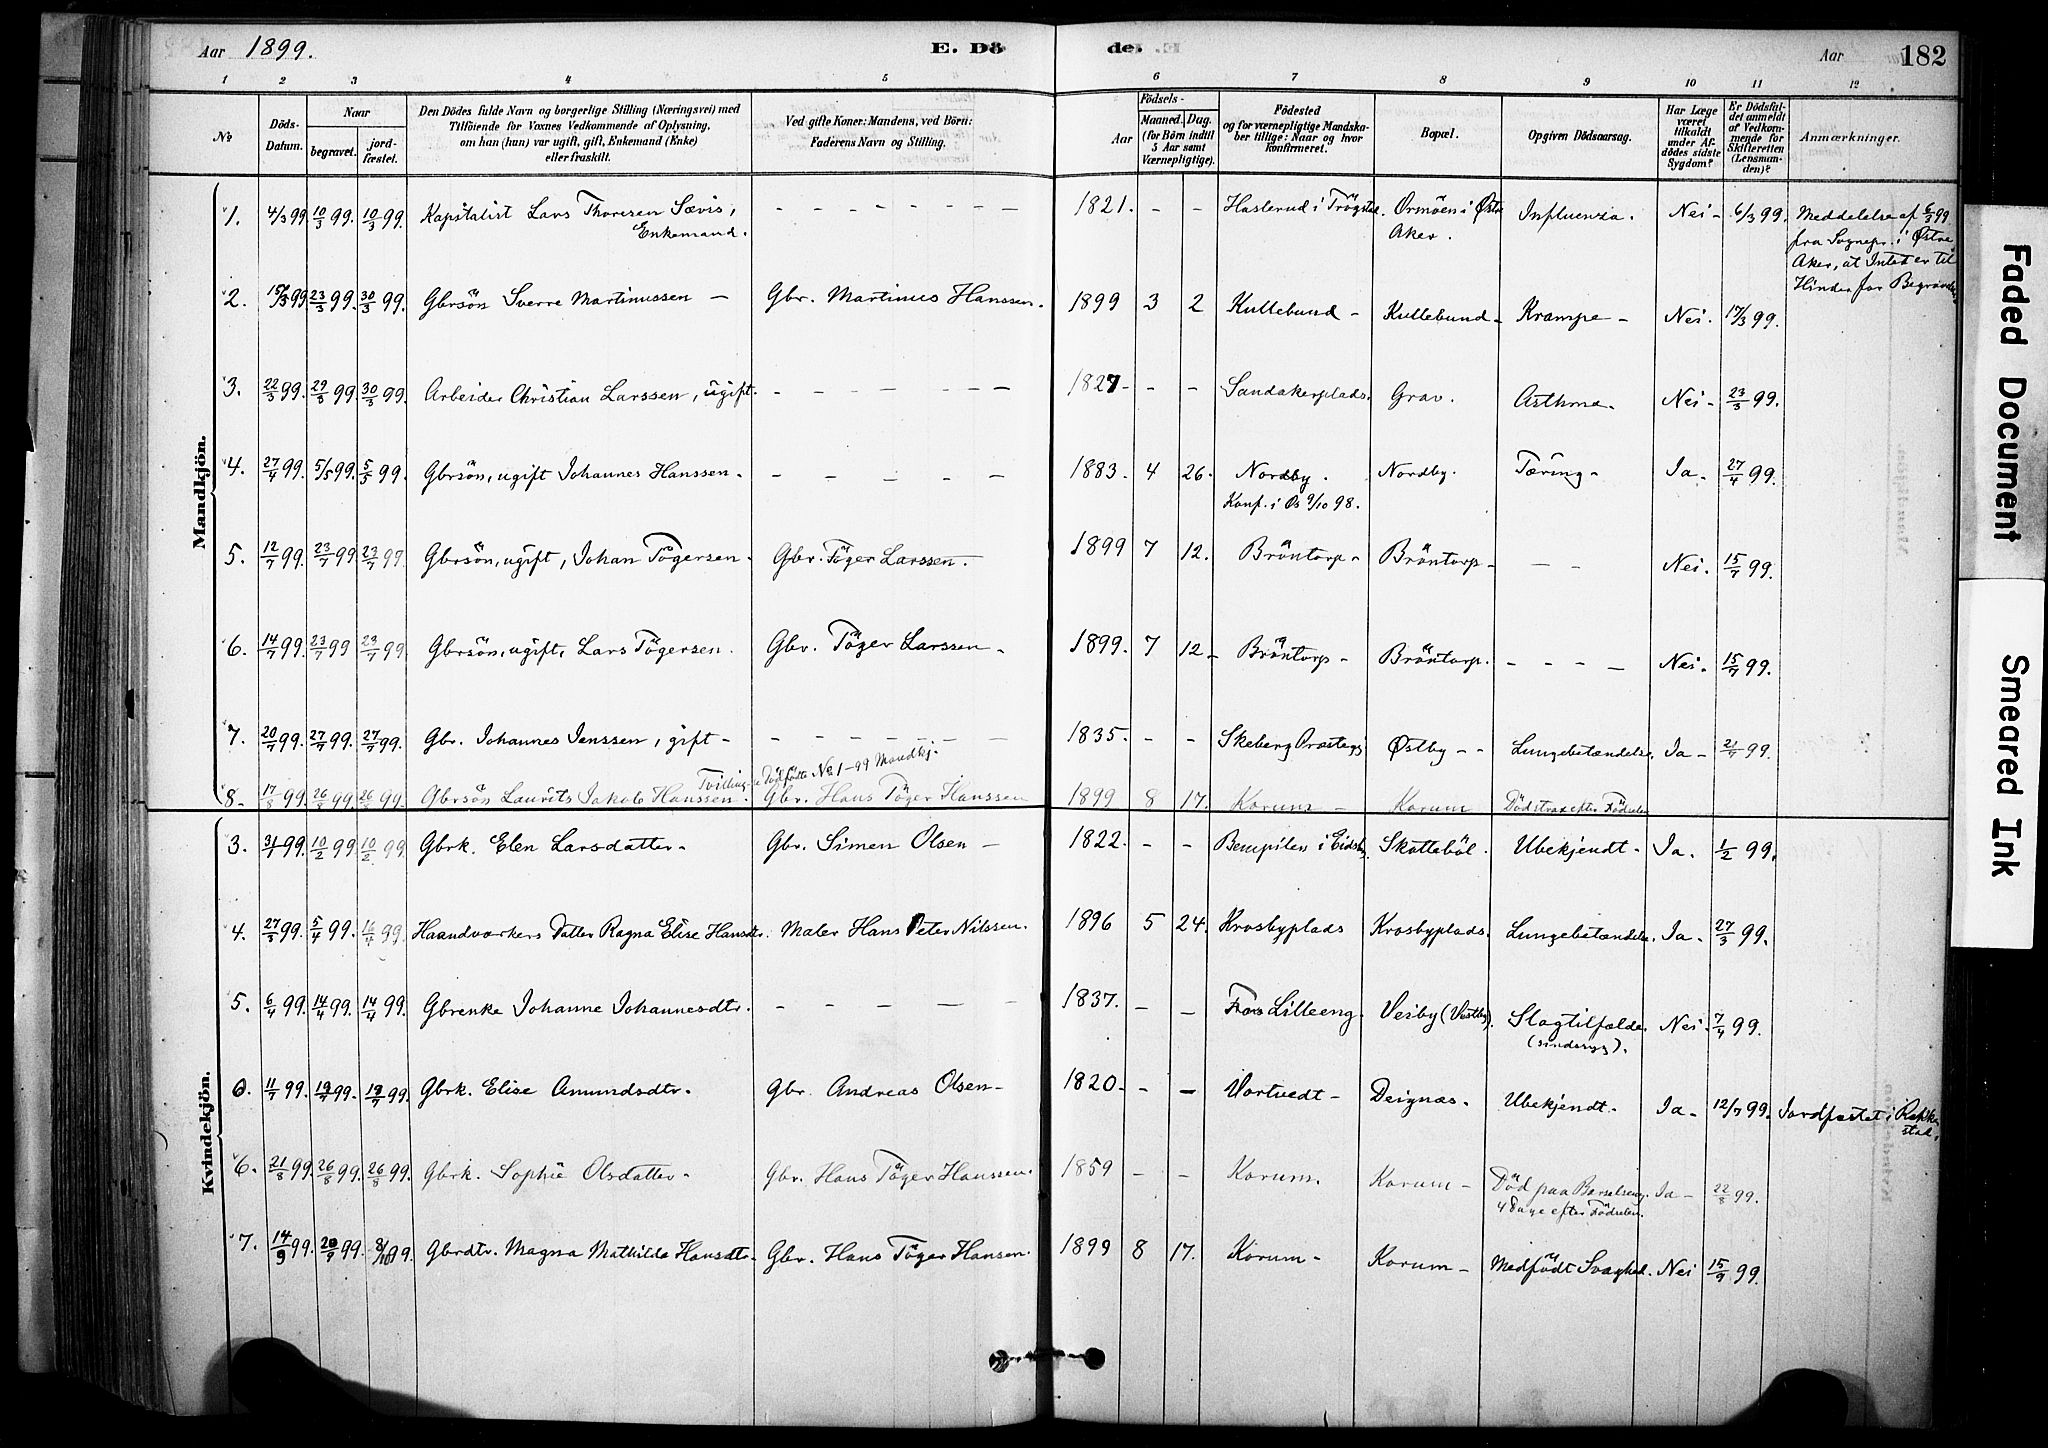 Aar 1899. E. Dö de. Aar 182
1 2 3 4 5 6 7 8 9 10 11 12
No Döds-Datum. Naar begravet. jordfæstet. Den Dödes fulde Navn og borgerlige Stilling (Næringsvei) med Tilföiende for Voxnes Vedkommende af Oplysning, om han (hun) var ugift, gift, Enkemand (Enke) eller fraskilt. Ved gifte Koner: Mandens, ved Börn: Faderens Navn og Stilling. Aar Födsels- Maaned. Dag. (for Börn indtil 5 Aar samt Værnepligtige). Födested og for værnepligtige Mandskaber tillige: Naar og hvor konfirmeret. Bopæl. Opgiven Dödsaarsag. Har Læge været tilkaldt under Afdödes sidste Sygdom? Er Dödsfaldet anmeldt af Vedkommende for Skifteretten (Lensmanden)? Anmærkninger.
Mandkjön.
1. 4/3 99 10/3 99. 10/3 99. Kapitalist Lars Thoresen Sævis, Enkemand. – – – 1821. – – Haslerud i Trögstad. Ormöen i Østre Aker. Influenza. Nei – 6/3 99. Meddelelse af 6/3 99 fra Sognepr. i Østre Aker, at Intet er til Hinder for Begravelse
2. 15/3 99 23/3 99. 30/3 99. Gbrsön Sverre Martinussen – Gbr. Martinus Hanssen. 1899 3 2 Kullebund – Kullebund – Krampe – Nei. 17/3 99.
3. 22/3 99. 29/3 99. 30/3 99. Arbeider Christian Larssen, ugift. – – – 1827 – – – Sandakerplads. Grav. Asthma. Nei – 23/3 99.
4. 27/4 99. 5/5 99. 5/5 99. Gbrsön, ugift Johannes Hanssen. – – – 1883. 4 26. Nordby. Konf. i Os 9/10 98. Nordby. Tæring – Ja. 27/4 99.
5. 12/7 99. 23/7 99. 23/7 99. Gbrsön, ugift, Johan Tögersen. Gbr. Töger Larssen. 1899 7 12. Bröntorp – Bröntorp – – – Nei. 15/7 99.
6. 14/7 99. 23/7 99 23/7 99. Gbrsön, ugift, Lars Tögersen. Gbr. Töger Larssen – 1899. 7 12 – Bröntorp – Bröntorp. – – – – Nei. 15/7 99.
7. 20/7 99. 27/7 99. 27/7 99. Gbr. Johannes Jenssen, gift – – – – 1835. – – Skeberg Prosteg. Østby – – Lungebetændelse. Ja – 21/7 99.
Tvilling Dödfödt No 1–99 Mandkj.
8. 17/8 99. 26/8 99. 26/8 99. Gbrsön Laurits Jakob Hanssen. Gbr. Hans Töger Hanssen 1899 8 17. Korum – Korum Död strax efter Födselen
Kvindekjön.
3. 31/1 99. 10/2 99 10/2 99. Gbrk. Elen Larsdatter – Gbr. Simen Olsen – 1822. – – Bempilen i Eidsb. Skotteböl. Ubekjendt – Ja. 1/2 99.
4. 27/3 99. 5/4 99. 16/4 99. Haandværkers Datter Ragna Elise Hansdtr. Maler Hans Peter Nilssen. 1896 5 24. Krosbyplads Krosbyplads. Lungebetændelse. Ja. 27/3 99.
5. 6/4 99. 14/4 99. 14/4 99. Gbrenke Johanne Johannesdtr. – – – 1837. – – Lilleeng. Vesby (Vestby). Slagtilfælde. (sindssyg). Nei. 7/4 99.
11/7 99. 19/7 99. 19/7 99. Gbrk. Elise Amundsdtr. Gbr. Andreas Olsen – 1820 – – – Vortvedt – Deignæs. Ubekjendt. Ja – 12/7 99. Jordfæstet i Rakkestad.
6. 21/8 99. 26/8 99. 26/8 99. Gbrk. Sophie Olsdatter – Gbr. Hans Töger Hanssen. 1859 – – Korum. Korum – Död paa Barselseng. 4 Dage efter Födselen. Ja – 22/8 99.
7. 14/9 99. 20/9 99. 8/10 99. Gbrdtr. Magna Mathilde Hansdtr. Gbr. Hans Töger Hansen. 1899 8 17. Korum – Korum – Medfödt Svaghed. Nei 15/9 99.
Faded Document
Smeared Ink